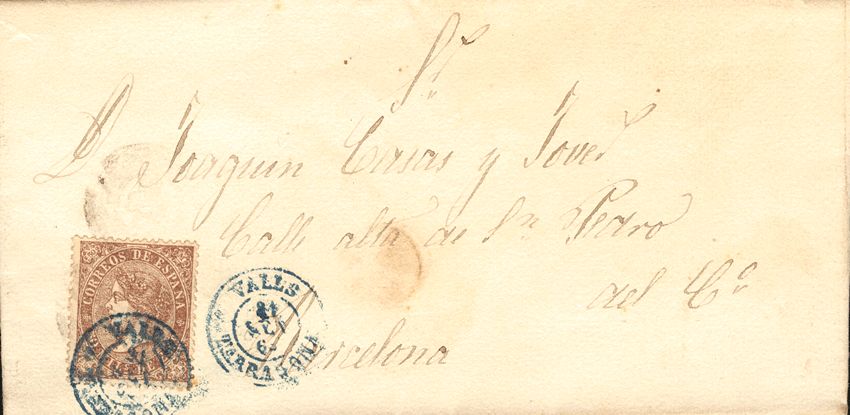 Sr.
D. Joaquin Casas y Jover
Calle alta de Sn. Pedro
del Co
Barcelona
CORREOS DE ESPAÑA
VALLS
TARRAGONA
VALLS
TARRAGONA